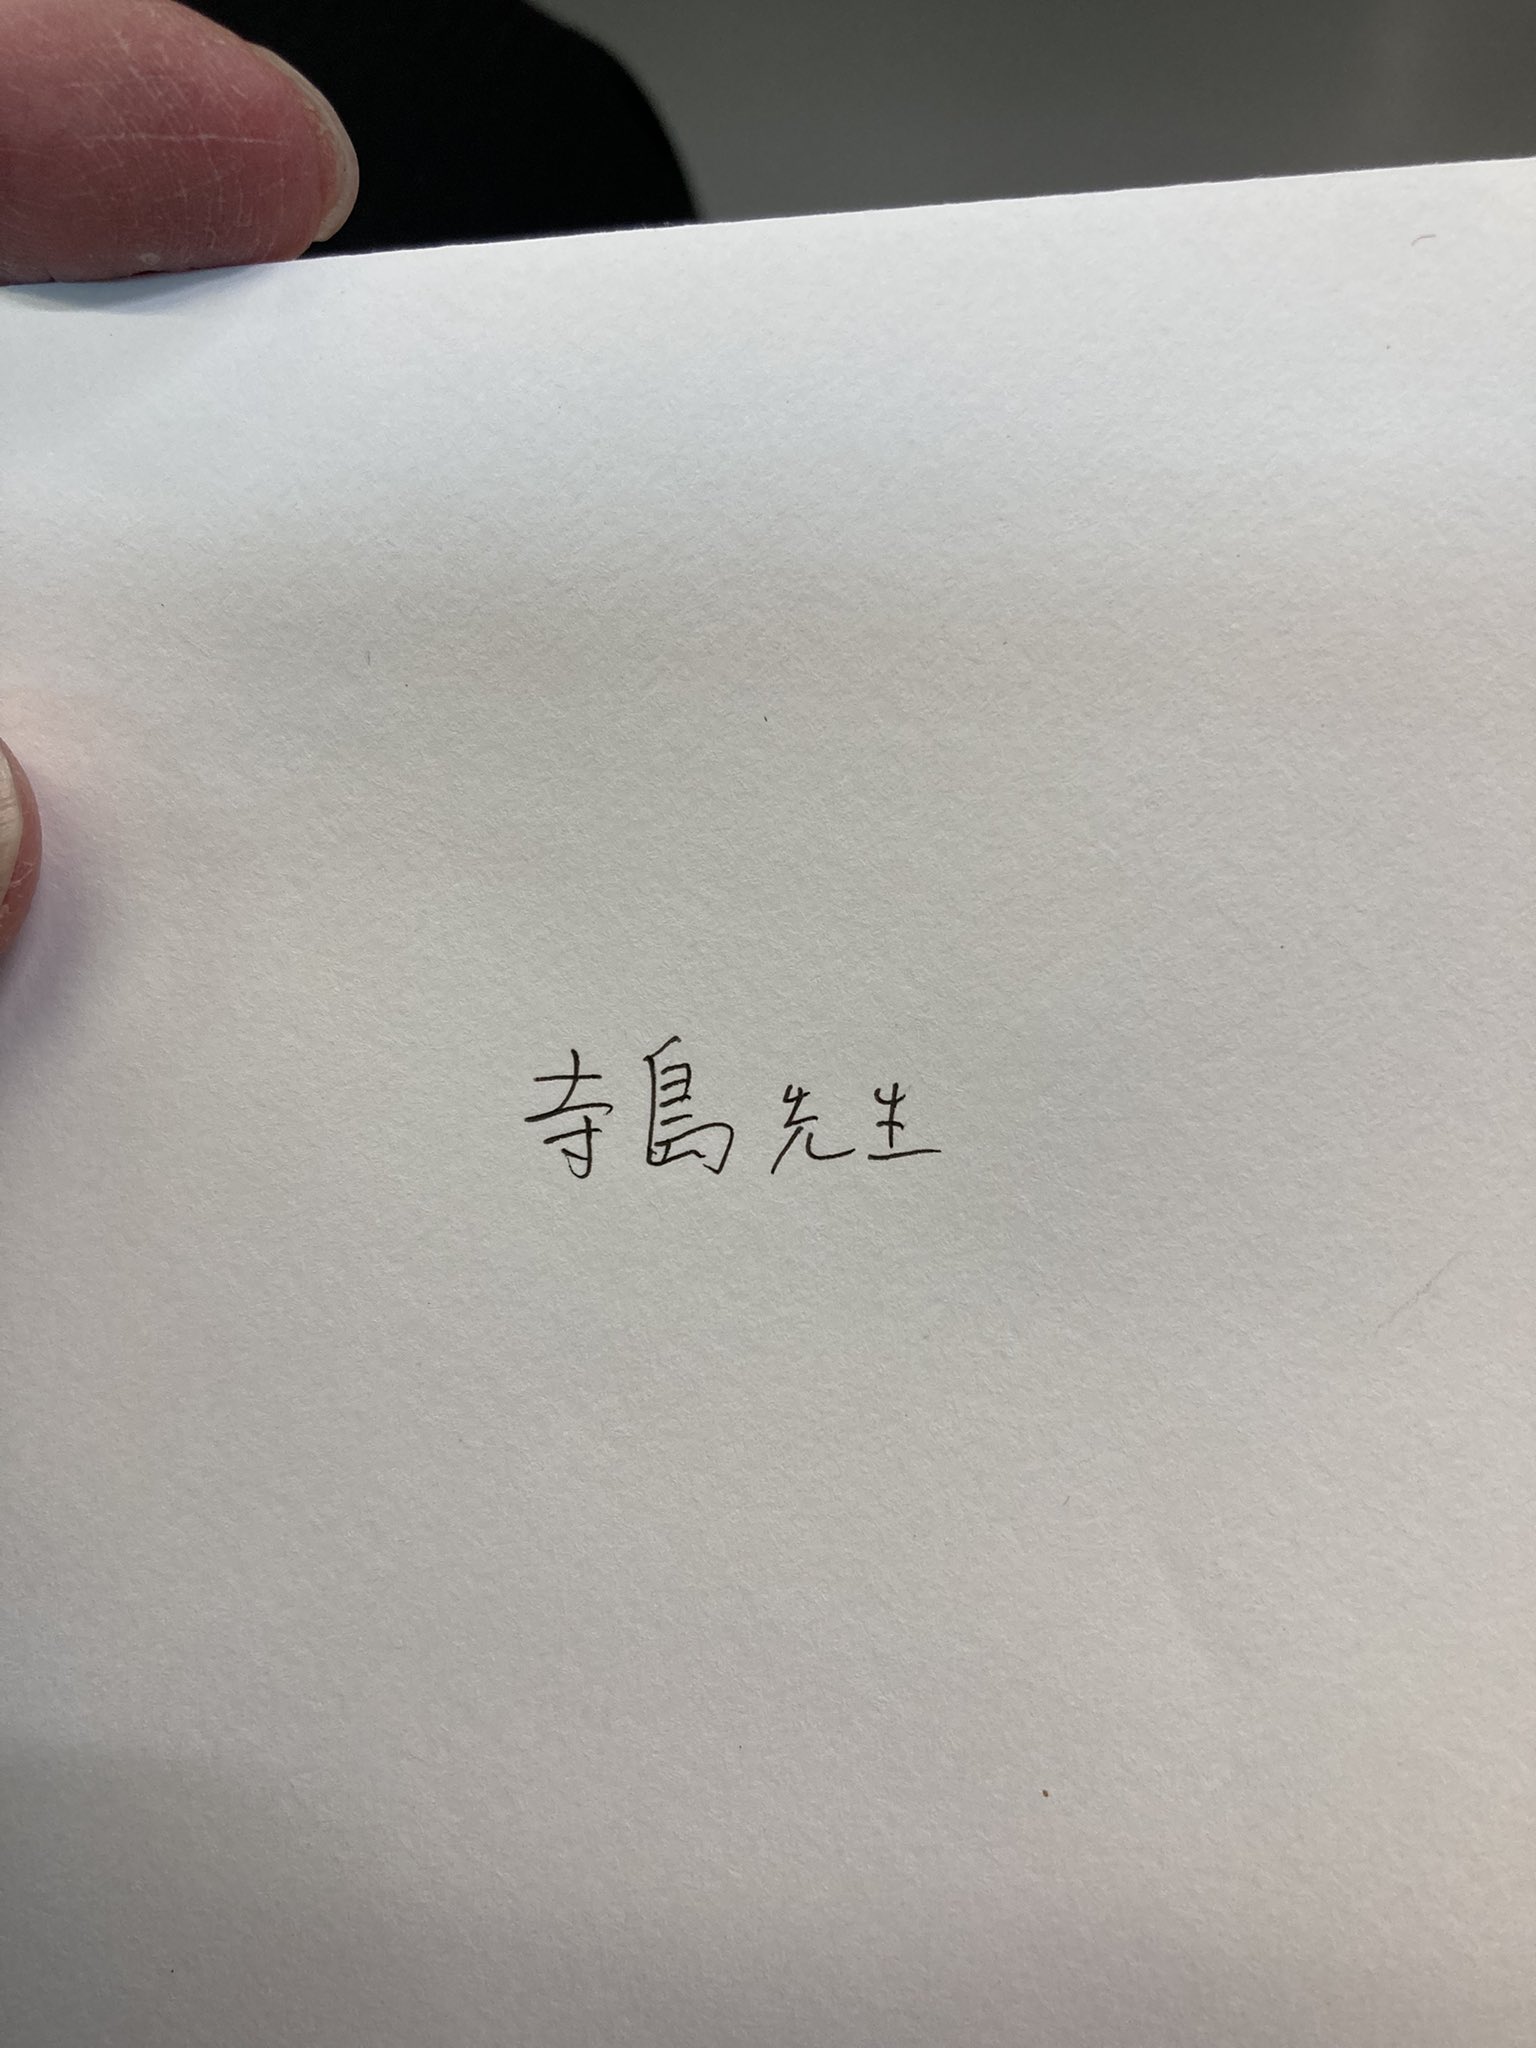 寺島先生